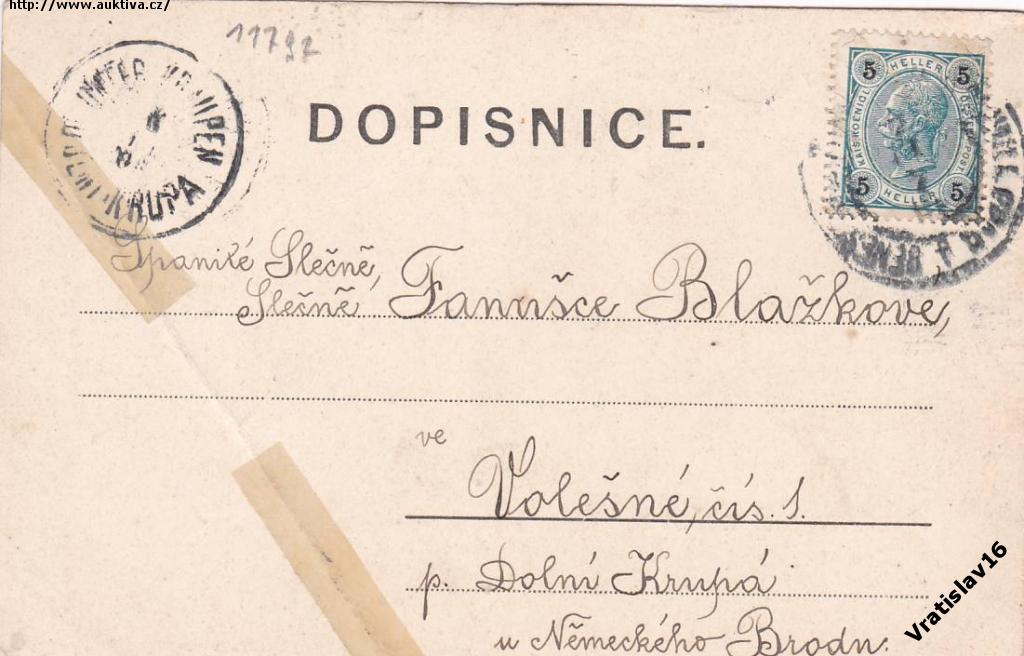 http://www.auktiva.cz/
11792
UNTER KRUPEN
DOLNÍ-KRUPA
DOPISNICE.
5 HELLER 5
KAISERKOENIGL OESTERR POST
5 HELLER 5
Spanilé Slečně,
Slečně Fanušce Blažkove,
ve
Volešné, čís. 1.
p. Dolní Krupá
u Německého Brodu.
Vratislav16